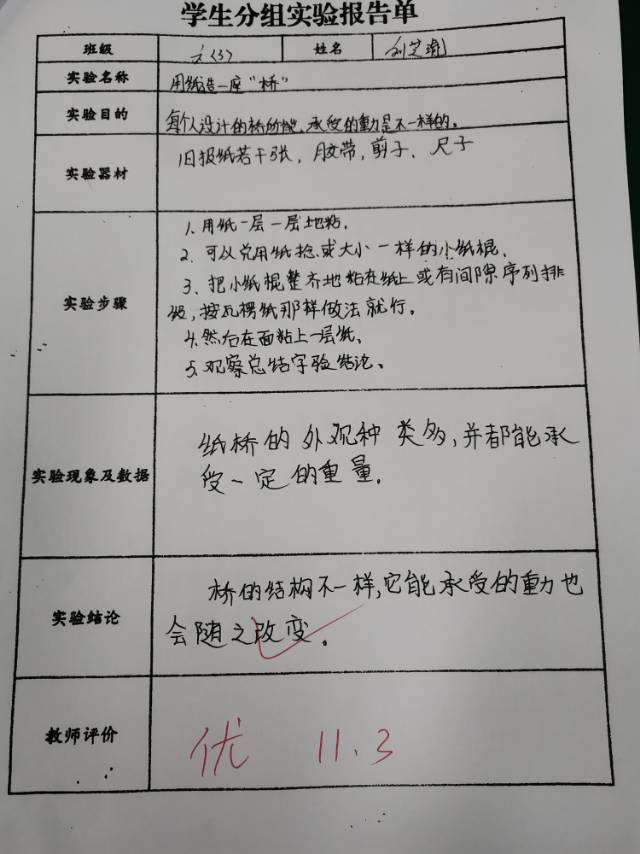 学生分组实验报告单
班级 六(3) 姓名 刘芝
实验名称 用纸造一座“桥”
实验目的 每个人设计的桥所能承受的重力是不一样的。
实验器材 旧报纸若干张，胶带，剪子，尺子
实验步骤
1. 用纸一层一层地粘。
2. 可以先用纸 或大小一样的小纸棍，
3. 把小纸棍整齐地粘在纸上或有间隙序列排
，按瓦楞纸那样做法就行。
4. 然后在面粘上一层纸，
5. 观察总结 验结论。
实验现象及数据
纸桥的外观种类多，并都能承
受一定的重量。
实验结论
桥的结构不一样，它能承受的重力也
会随之改变。
教师评价 优 11.3